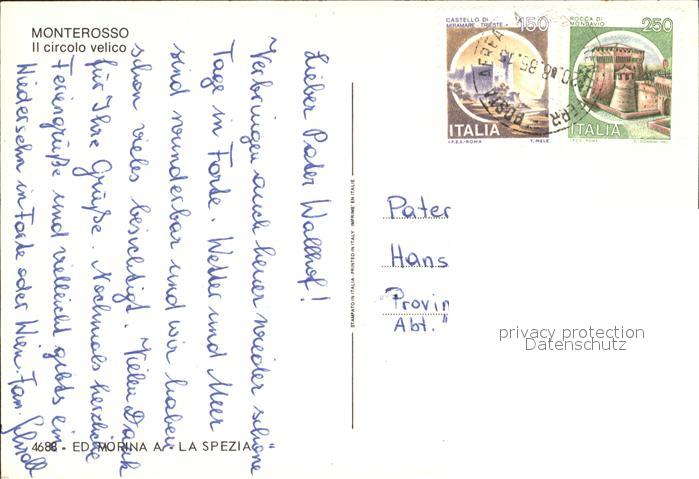 MONTEROSSO
Il circolo velico
CASTELLO DI
MIRAMARE - TRIESTE
150
ITALIA
I.P.Z.S.-ROMA
T. MELE
ROCCA DI
MONDAVIO
250
ITALIA
I.P.Z.S.-ROMA
Lieber Pater Wallhof!
Verbringen auch heuer wieder schöne
Tage in Forte. Wetter und Meer
sind wunderbar und wir haben
schon vieles besichtigt. Vielen Dank
für Ihre Grüße. Nochmals herzliche
Feriengrüße und vielleicht gibts ein
Wiedersehn in Forte oder Wien. Fam.
STAMPATO IN ITALIA - PRINTED IN ITALY IMPRIME EN ITALIE
Pater
Hans
"Provin
Abt."
privacy protection
Datenschutz
4688 - ED. MORINA A. - LA SPEZIA